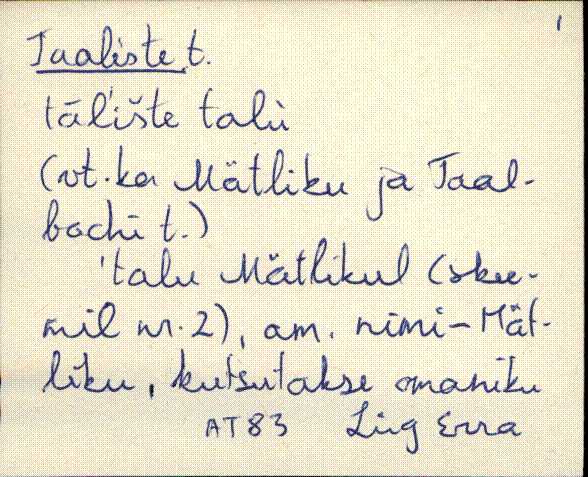 1
Taaliste t.
tāĺište talù
(vt. ka Mätliku ja Taal-
bachi t.)
'talu Mätlikul (sku-
mil nr. 2), am. nimi - Mät-
liku, kutsutakse omaniku
AT83 Lüg Erra